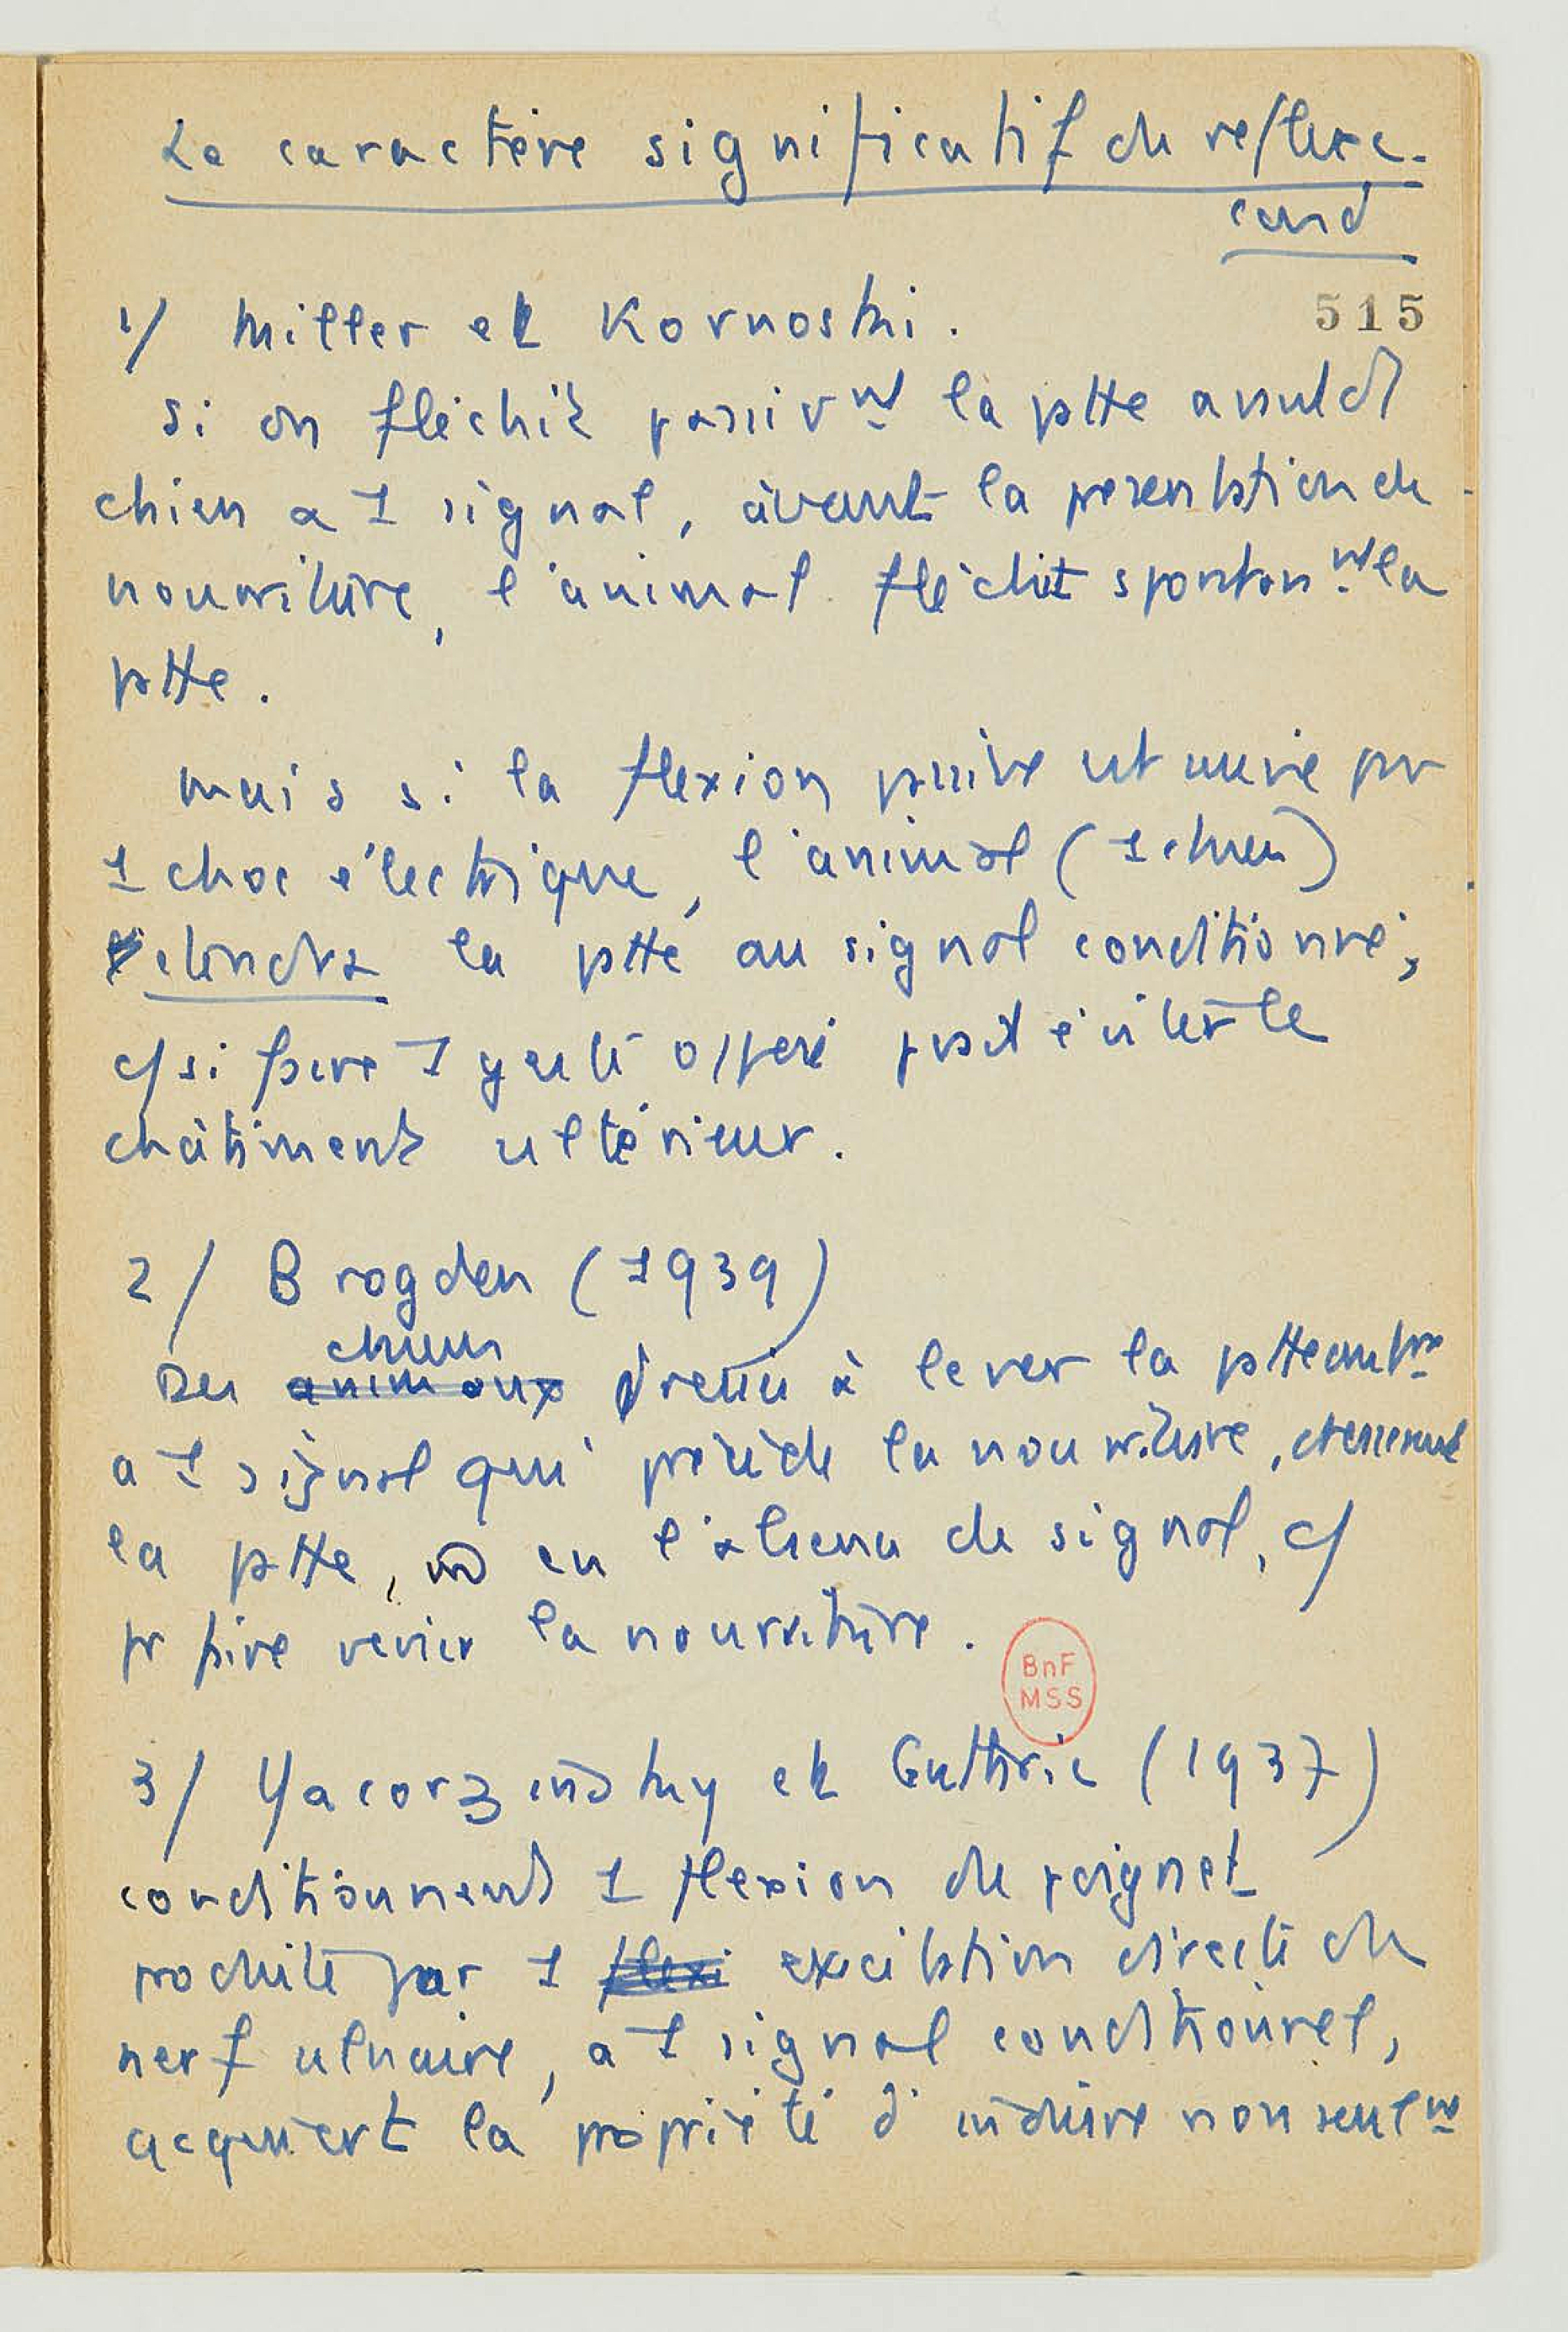 Le caractère significatif du reflexe
cond
515
1/ Miller et Kornoski.
Si on fléchit passivnt la patte d
chien a 1 signal, avant la presentation de
nourriture, l'animal fléchit spontannt la
patte.
mais si la flexion passive est suivie par
1 choc électrique, l'animal (1 chien)
étendra la patte au signal conditionné,
c/ si faire 1 geste opposé pvait éviter le
châtiment ultérieur.
2/ Brogden (1939)
chiens
Des animaux dressés à lever la patte
a 1 signal qui précède la nourriture,
la patte, en l'absence de signal, c/
pr faire venir la nourriture.
BnF
MSS
3/ Yacorzinsky et Guthrie (1937)
conditionnent 1 flexion du poignet
produite par 1 flexi excitation directe du
nerf ulnaire, a 1 signal conditionnel,
acquiert la propriété d'induire non seulnt